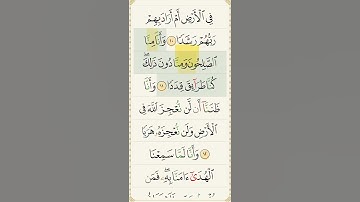 فِي ٱلْأَرْضِ أَمْ أَرَادَ بِهِمْ
رَبُّهُمْ رَشَدًا ١٠ وَأَنَّا مِنَّا
ٱلصَّٰلِحُونَ وَمِنَّا دُونَ ذَٰلِكَۖ
كُنَّا طَرَآئِقَ قِدَدًا ١١ وَأَنَّا
ظَنَنَّآ أَن لَّن نُّعْجِزَ ٱللَّهَ فِي
ٱلْأَرْضِ وَلَن نُّعْجِزَهُۥ هَرَبًا
١٢ وَأَنَّا لَمَّا سَمِعْنَا
ٱلْهُدَىٰٓ ءَامَنَّا بِهِۦۖ فَمَن